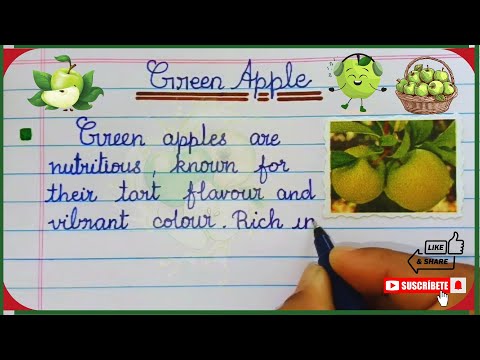 Green Apple
Green apples are
nutritious, known for
their tart flavour and
vibrant colour. Rich in
LIKE
& SHARE
SUSCRÍBETE